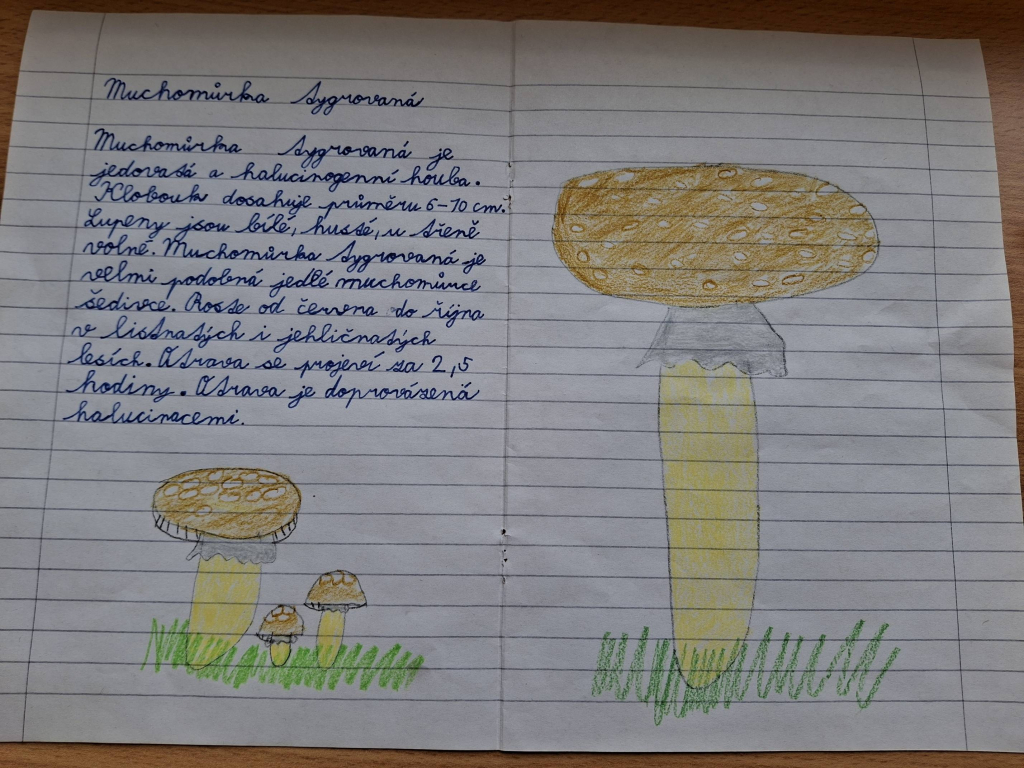 Muchomůrka tygrovaná
Muchomůrka tygrovaná je
jedovatá a halucinogenní houba.
Klobouk dosahuje průměru 6-10 cm.
Lupeny jsou bílé, husté, u třeně
volné. Muchomůrka tygrovaná je
velmi podobná jedlé muchomůrce
šedivce. Roste od června do října
v listnatých i jehličnatých
lesích. Otrava se projeví za 2,5
hodiny. Otrava je doprovázená
halucinacemi.